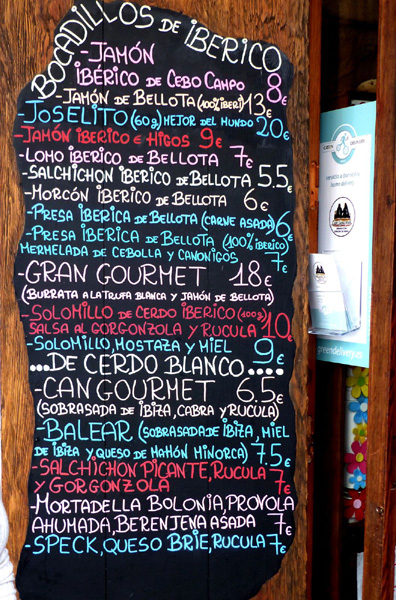 BOCADILLOS DE IBERICO
-JAMÓN
IBÉRICO DE CEBO CAMPO 8€
-JAMÓN DE BELLOTA (100% IBERI) 13€
-JOSELITO (60g) MEJOR DEL MUNDO 20€
-JAMÓN IBERICO E HIGOS 9€
-LOMO IBERICO DE BELLOTA 7€
-SALCHICHON IBERICO DE BELLOTA 5.5€
-MORCÓN IBERICO DE BELLOTA 6€
-PRESA IBERICA DE BELLOTA (CARNE ASADA) 6€
-PRESA IBERICA DE BELLOTA (100% IBERICO)
MERMELADA DE CEBOLLA Y CANONIGOS 7€
-GRAN GOURMET 18€
(BURRATA A LA TRUFA BLANCA Y JAMÓN DE BELLOTA)
-SOLOMILLO DE CERDO IBERICO (100g)
SALSA AL GORGONZOLA Y RUCULA 10€
-SOLOMILLO, MOSTAZA Y MIEL 9€
...DE CERDO BLANCO....
-CAN GOURMET 6.5€
(SOBRASADA DE IBIZA, CABRA Y RUCULA)
-BALEAR (SOBRASADA DE IBIZA, MIEL
DE IBIZA Y QUESO DE MAHÓN MINORCA) 7.5€
-SALCHICHON PICANTE, RUCULA
Y GORGONZOLA 7€
-MORTADELLA BOLONIA, PROVOLA
AHUMADA, BERENJENA ASADA 7€
-SPECK, QUESO BRIE, RUCULA 7€
servicio a domicilio
home delivery
greendelivery.es